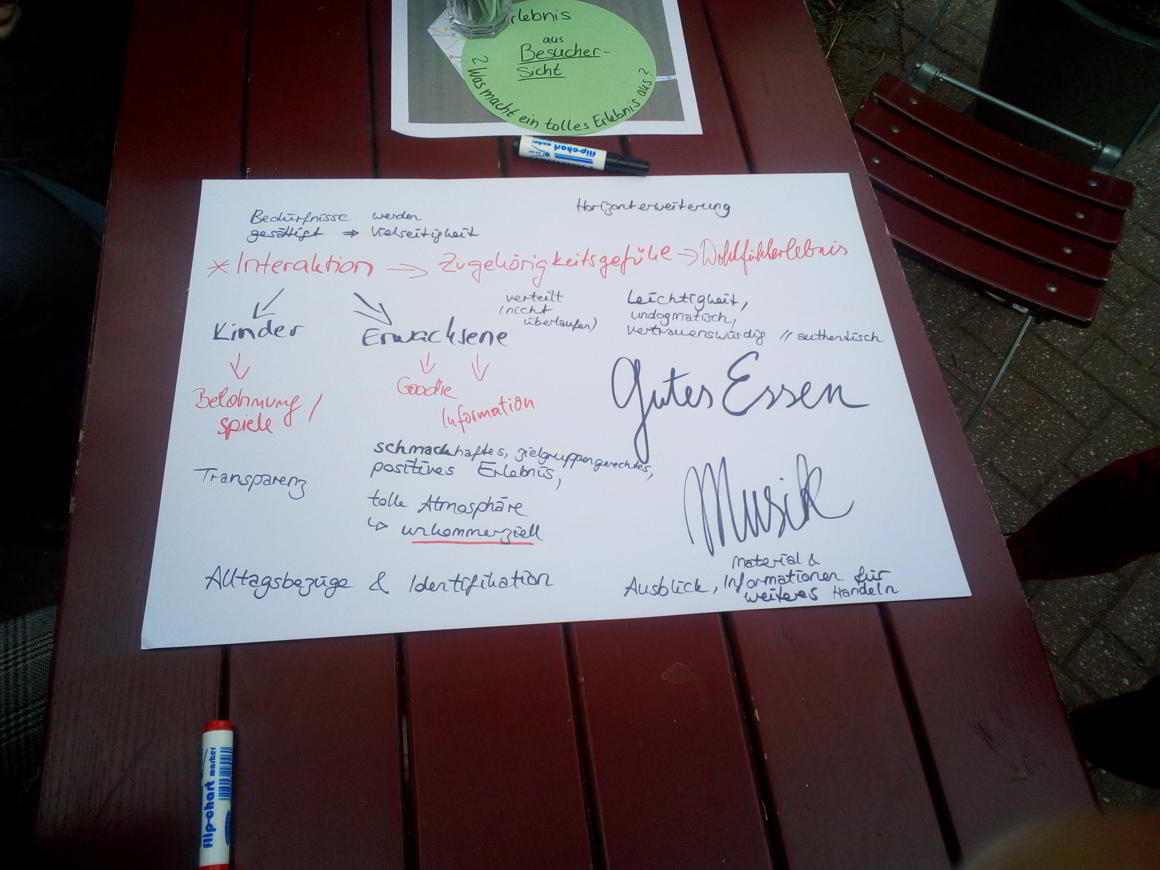 Erlebnis
aus
Besucher-
sicht
? Was macht ein tolles Erlebnis aus?
flip-chart marker
Bedürfnisse werden
gesättigt ⇒ Vielseitigkeit
Horizonterweiterung
* Interaktion → Zugehörigkeitsgefühle → Wohlfühlerlebnis
verteilt
(nicht
überlaufen)
Leichtigkeit,
undogmatisch,
vertrauenswürdig // authentisch
Kinder
Erwachsene
Belohnung /
spiele
Goodie
Information
Gutes Essen
schmackhaftes, zielgruppengerechtes,
positives Erlebnis,
Transparenz
tolle Atmosphäre
↳ unkommerziell
Musik
Alltagsbezüge & Identifikation
Material &
Ausblick, Informationen für
weiteres Handeln
flip-chart marker